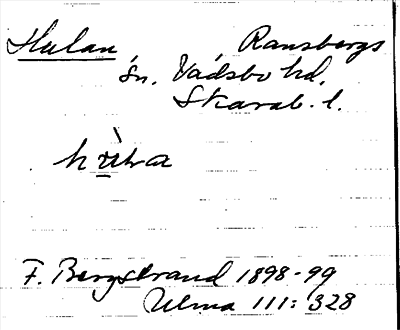 Hulan, Ransbergs
sn. Vadsbo hd.
Skarab. l.
F. Bergstrand 1898-99
Ulma 111: 328